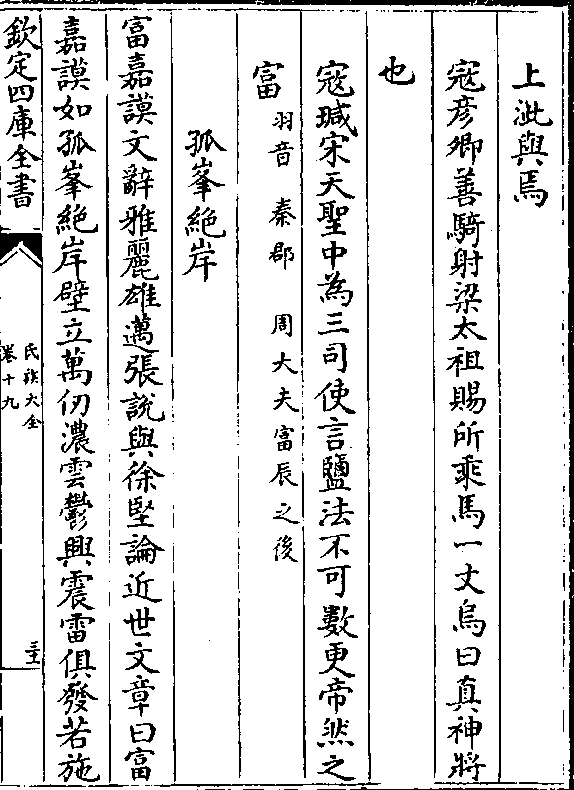 上泚與焉
寇彦卿善騎射梁太祖賜所乘馬一丈烏曰真神將
也
寇瑊宋天聖中為三司使言鹽法不可數更帝然之
富 羽音 秦郡 周大夫富辰之後
孤峯絶岸
富嘉謨文辭雅麗雄邁張說與徐堅論近世文章曰富
嘉謨如孤峯絶岸壁立萬仞濃雲鬱興震雷俱發若施
欽定四庫全書
氏族大全
卷十九